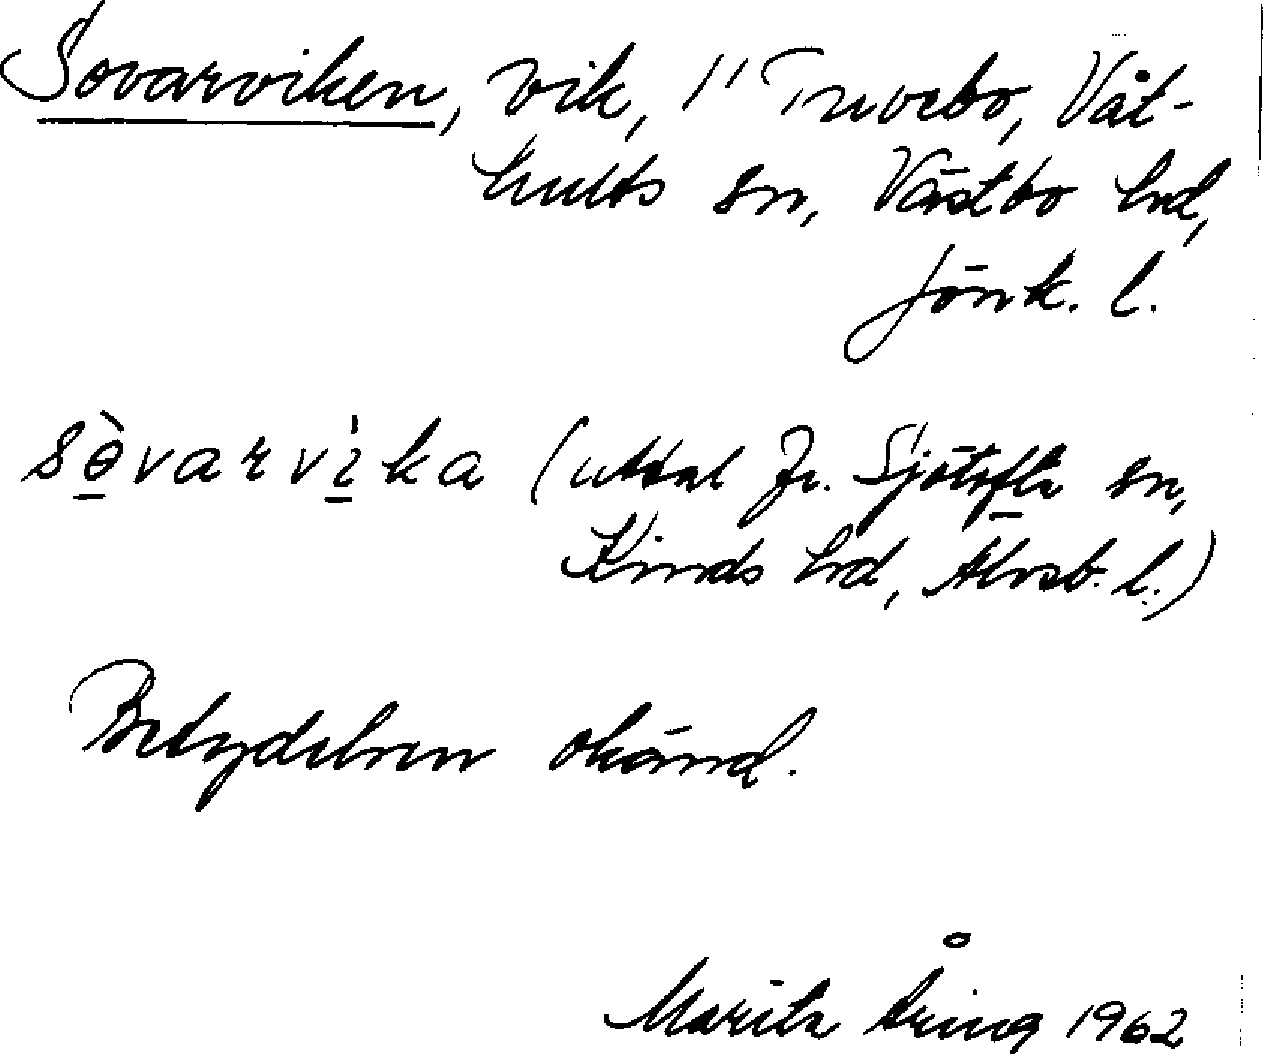 Sovarviken, vik, 1" Truvebo, Våt-
hults sn, Västbo hrd,
Jönk. l.
sɵ̀varvìka (uttal fr. Sjötofta sn,
Kinds hrd, Älvsb. l.)
Betydelsen okänd.
Moritz Åring 1962